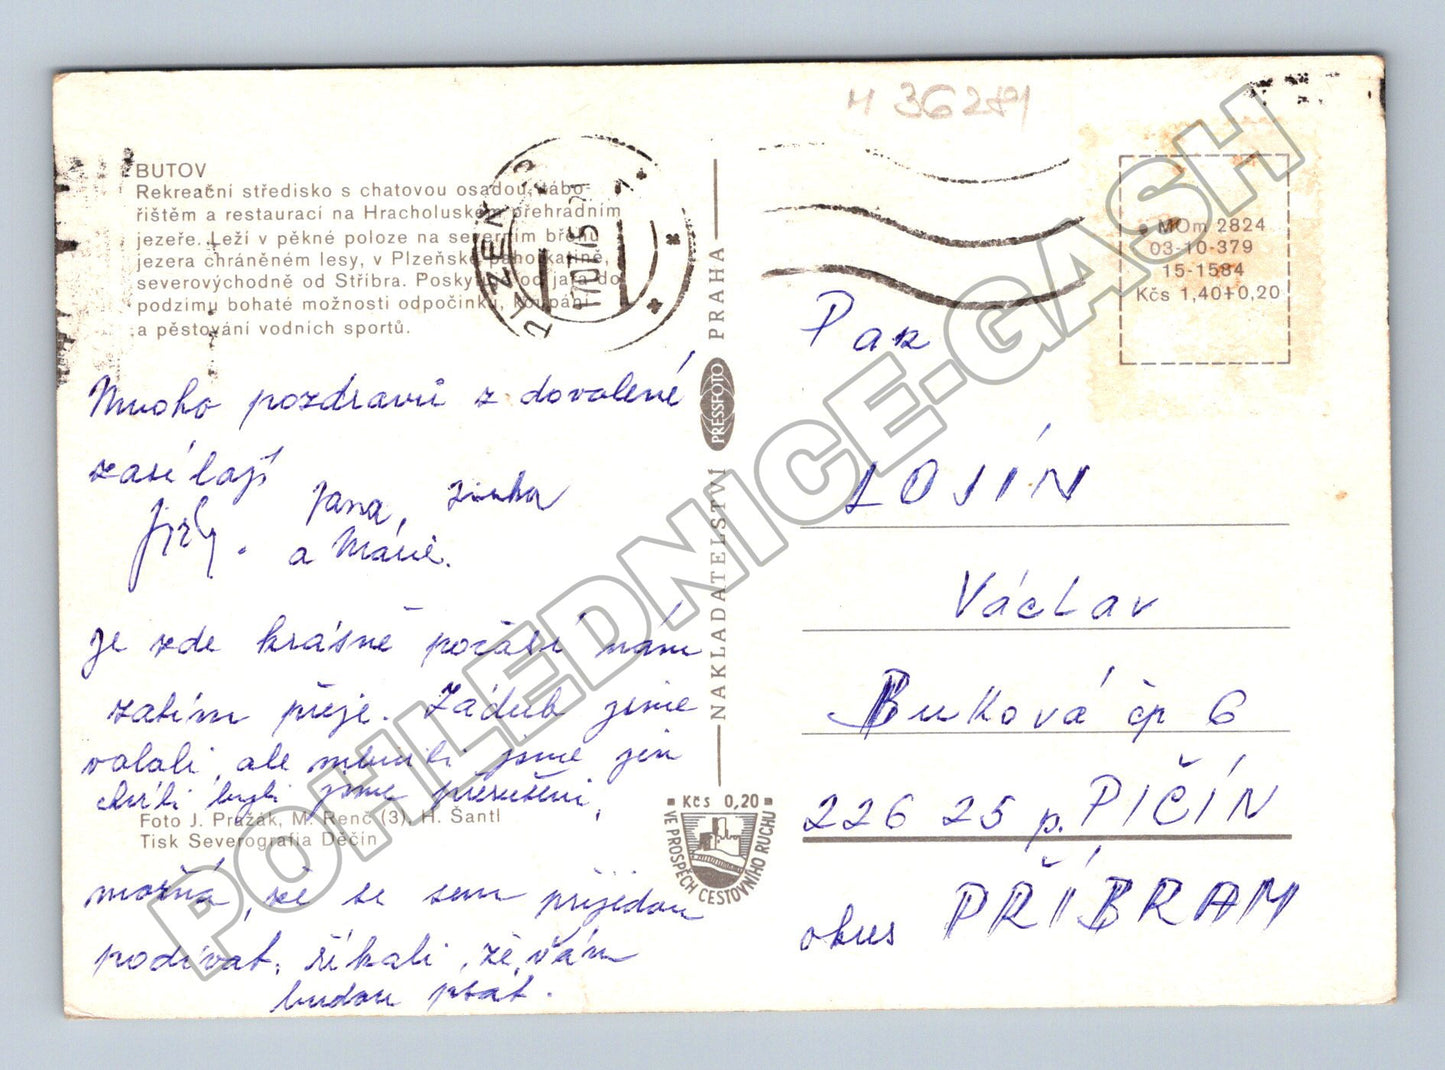 BUTOV
Rekreační středisko s chatovou osadou, tábo-
řištěm a restaurací na Hracholuském přehradním
jezeře. Leží v pěkné poloze na severním břehu
jezera chráněném lesy, v Plzeňské pahorkatině,
severovýchodně od Stříbra. Poskytuje od jara do
podzimu bohaté možnosti odpočinku, koupání
a pěstování vodních sportů.
Mnoho pozdravů z dovolené
zasílají
Jirka. Jana,
a Marie.
Je zde krásně počasí nám
zatím přeje. Zádub jsme
volali, ale mluvili jsme jen
chvíli byli jsme přerušeni,
Foto J. Pražák, M. Renč (3), H. Šantl
Tisk Severografia Děčín
možná, že se sem přijedou
podívat, říkali, že vám
budou psát.
PLZEŇ
NAKLADATELSTVÍ PRESSFOTO PRAHA
Kčs 0,20
VE PROSPĚCH CESTOVNÍHO RUCHU
M 36284
MOm 2824
03-10-379
15-1584
Kčs 1,40+0,20
Pan
LOJÍN
Václav
Buková čp 6
226 25 p. PIČÍN
okres PŘÍBRAM
POHLEDNICE-GASH